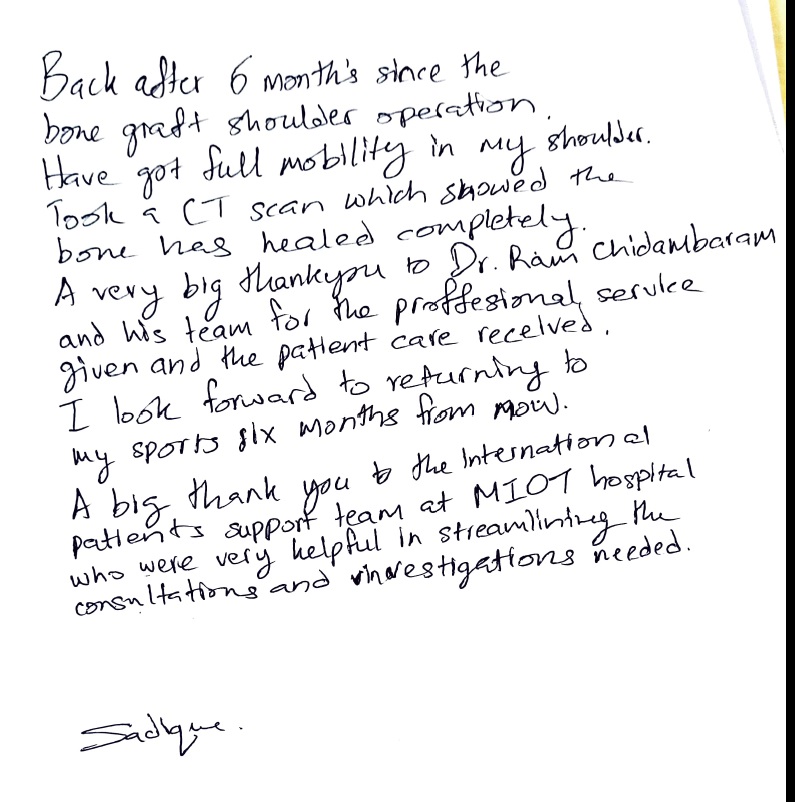 Back after 6 month's since the
bone graft shoulder operation.
Have got full mobility in my shoulder.
Took a CT scan which showed the
bone has healed completely.
A very big thankyou to Dr. Ram Chidambaram
and his team for the proffesional service
given and the patient care received.
I look forward to returning to
my sports six months from now.
A big thank you to the International
patients support team at MIOT hospital
who were very helpful in streamlining the
consultations and investigations needed.
Sadique.